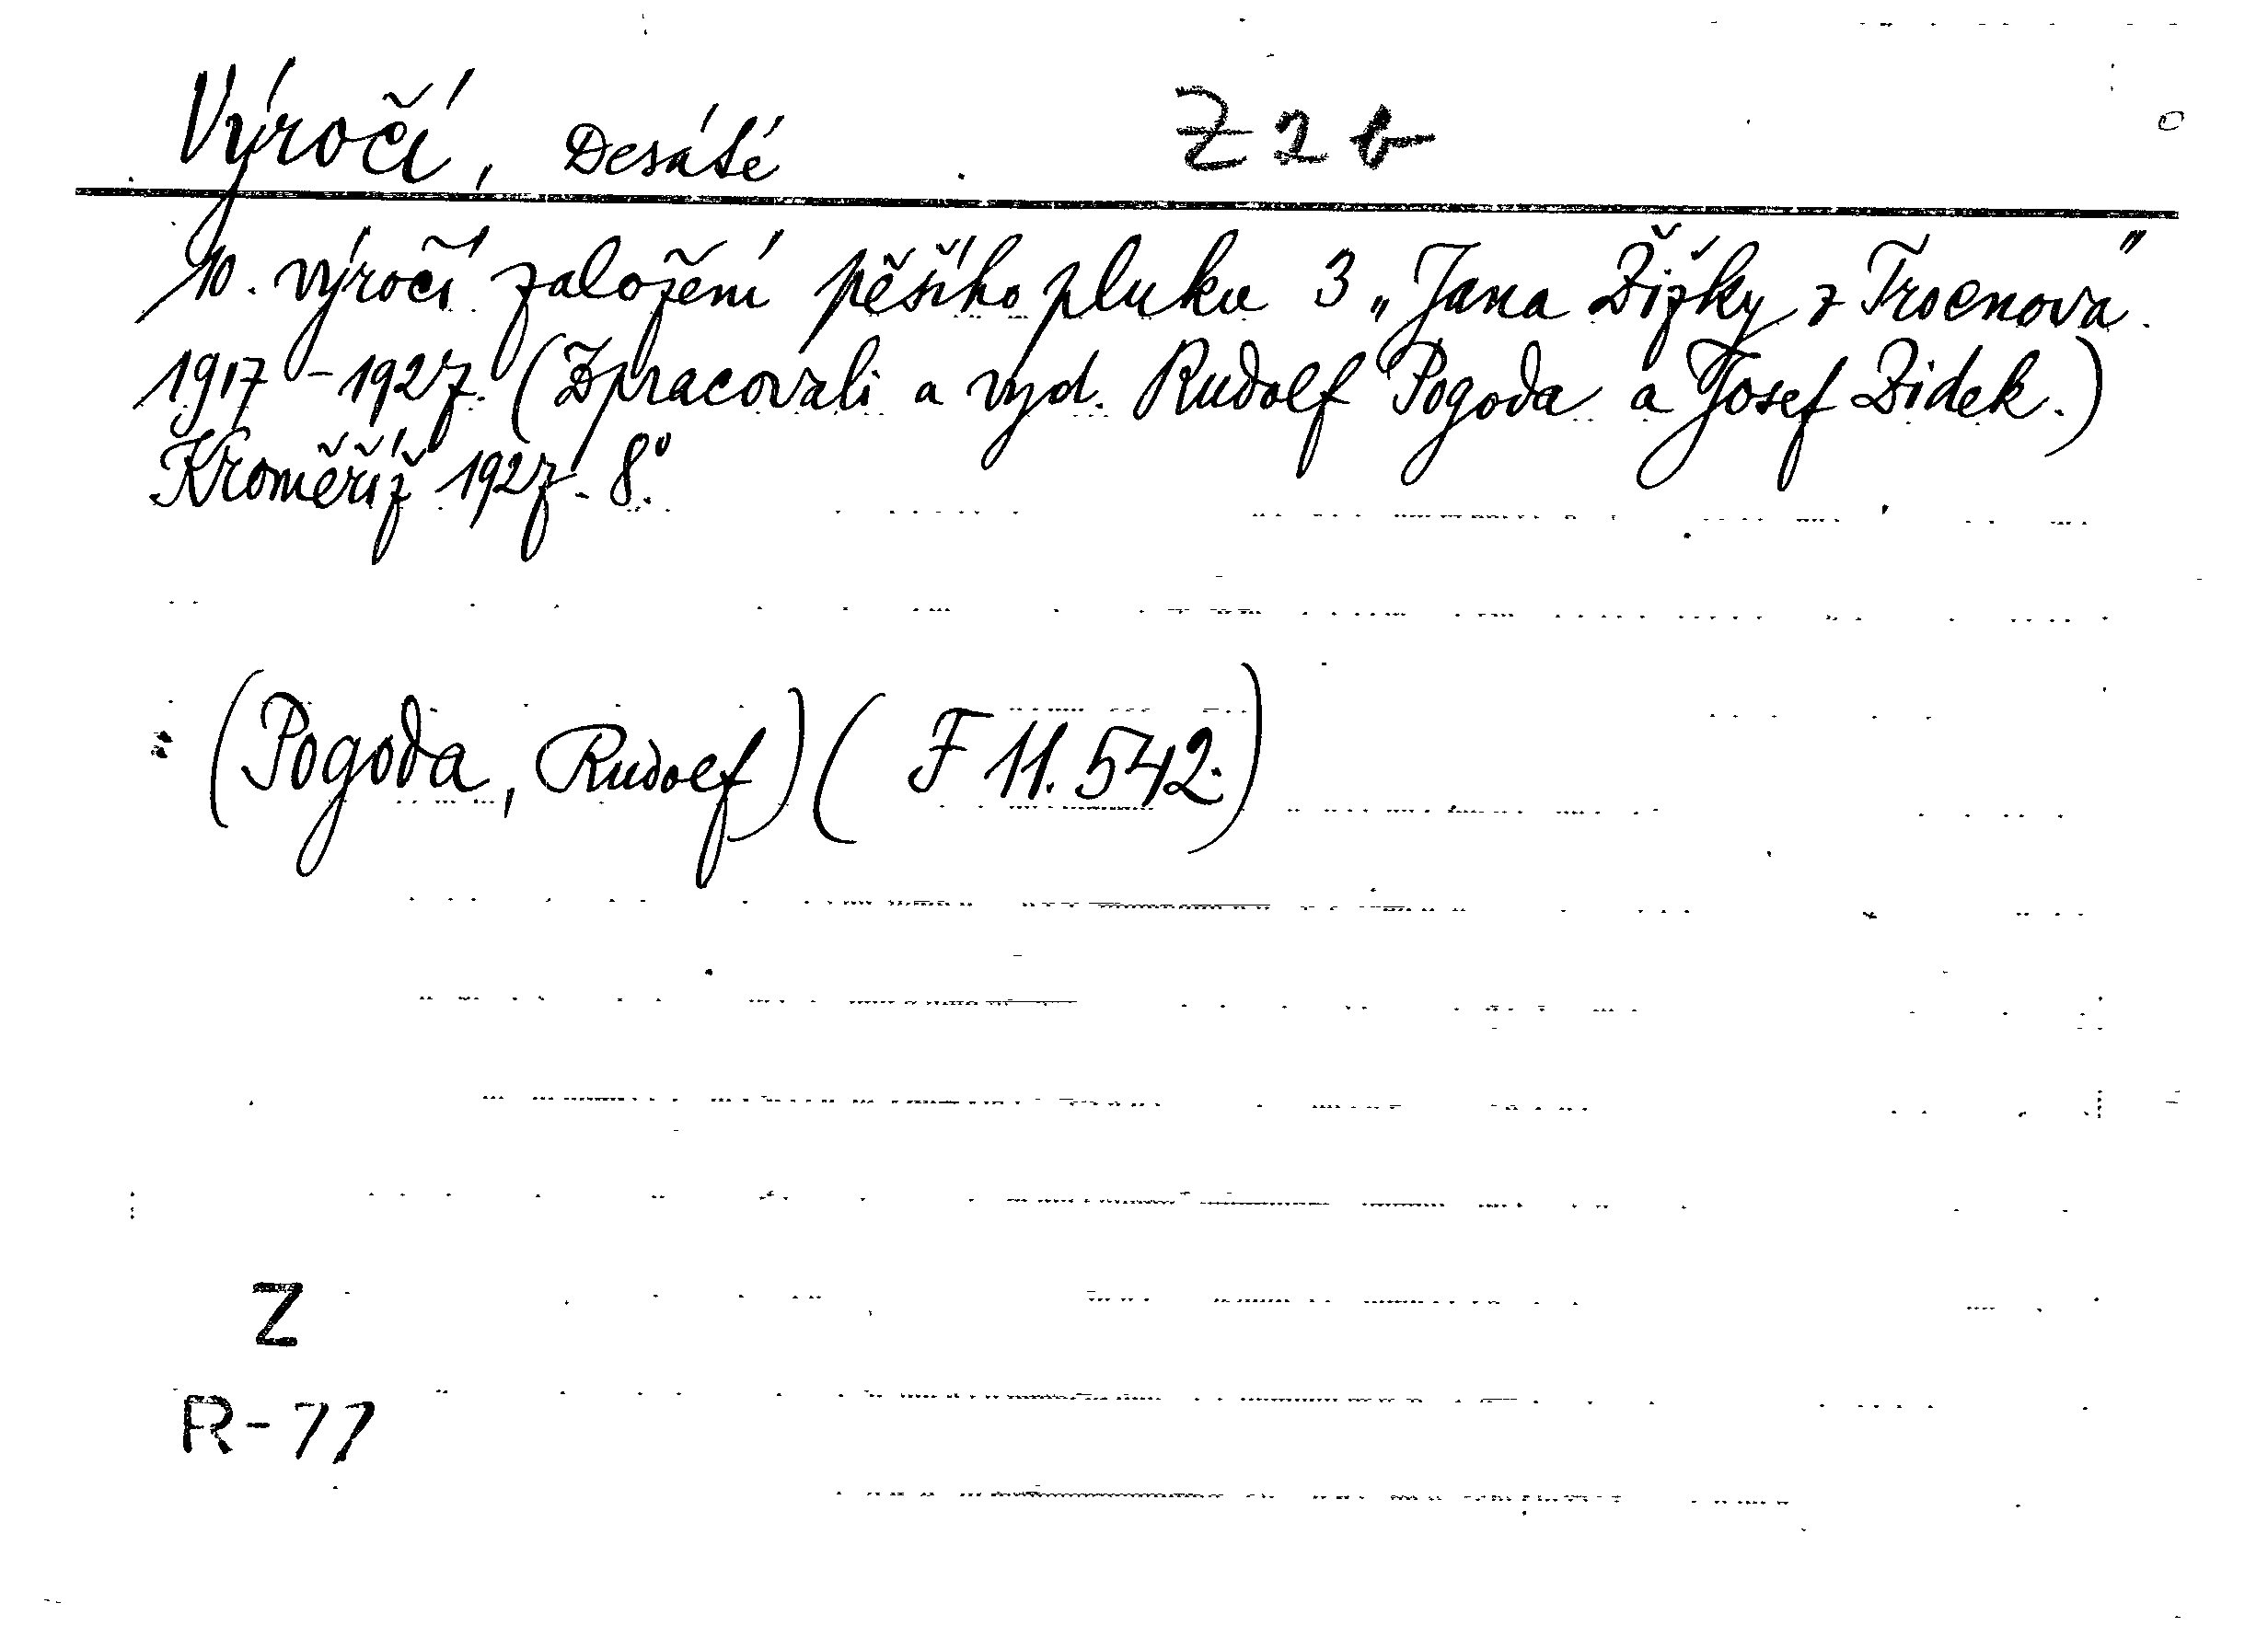 Výročí, Desáté Z 2 b
10. výročí založení pěšího pluku 3 „Jana Žižky z Trocnova"
1917-1927. (Zpracovali a vyd. Rudolf Pogoda a Josef Zidek.)
Kroměříž 1927. 8°.
(Pogoda, Rudolf) ( F 11.542.)
Z
R-77